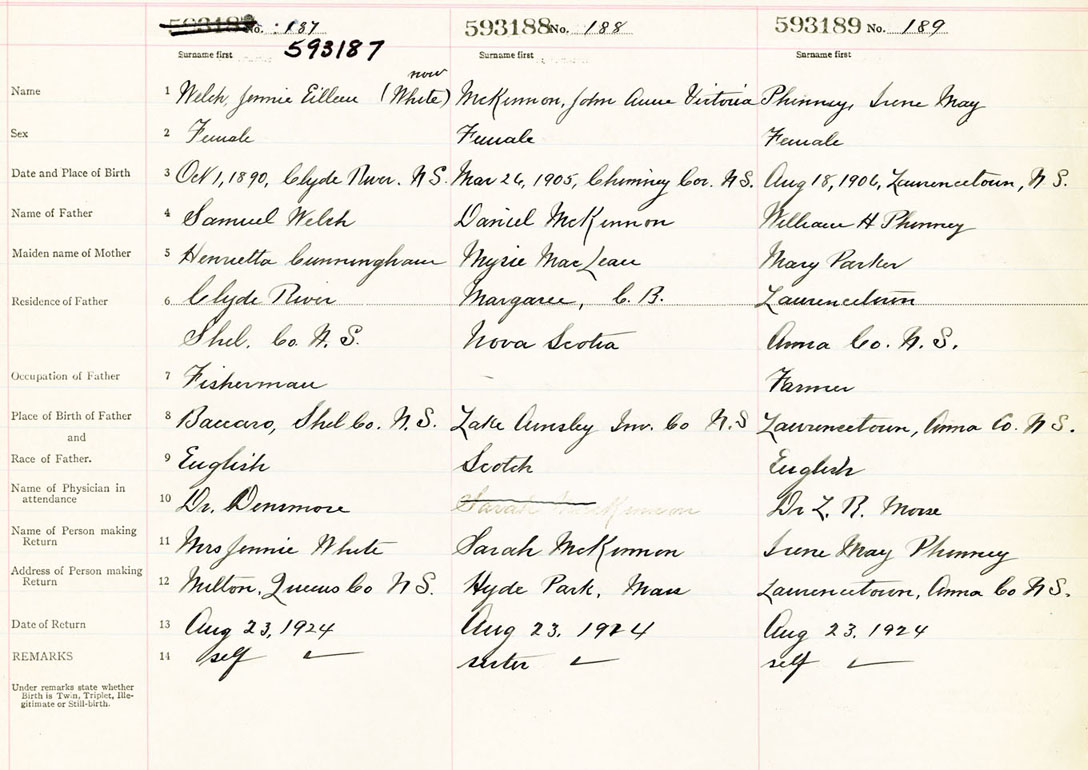 No. 187 593188 No. 188 593189 No. 189
Surname first 593187 Surname first Surname first
now
Name 1 Welch, Jennie Eilleen (White) McKinnon, John Anne Victoria Phinney, Irene May
Sex 2 Female Female Female
Date and Place of Birth 3 Oct 1, 1890, Clyde River. N.S. Mar 26, 1905, Chimney Cor. N.S. Aug 18, 1906, Lawrencetown, N.S.
Name of Father 4 Samuel Welch Daniel McKinnon William H Phinney
Maiden name of Mother 5 Henrietta Cunningham Myrie MacLean Mary Parker
Residence of Father 6 Clyde River Margaree, C.B. Lawrencetown
Shel. Co. N.S. Nova Scotia Anna Co. N.S.
Occupation of Father 7 Fisherman Farmer
Place of Birth of Father 8 Baccaro, Shel Co. N.S. Lake Ainsley Inv. Co N.S Lawrencetown, Anna Co. N.S.
and
Race of Father. 9 English Scotch English
Name of Physician in
attendance 10 Dr. Densmore Sarah McKinnon Dr L. R. Morse
Name of Person making
Return 11 Mrs Jennie White Sarah McKinnon Irene May Phinney
Address of Person making
Return 12 Milton, Queens Co N.S. Hyde Park, Mass Lawrencetown, Anna Co N.S.
Date of Return 13 Aug 23, 1924 Aug 23, 1924 Aug 23, 1924
REMARKS 14 self sister self
Under remarks state whether
Birth is Twin, Triplet, Ille-
gitimate or Still-birth.